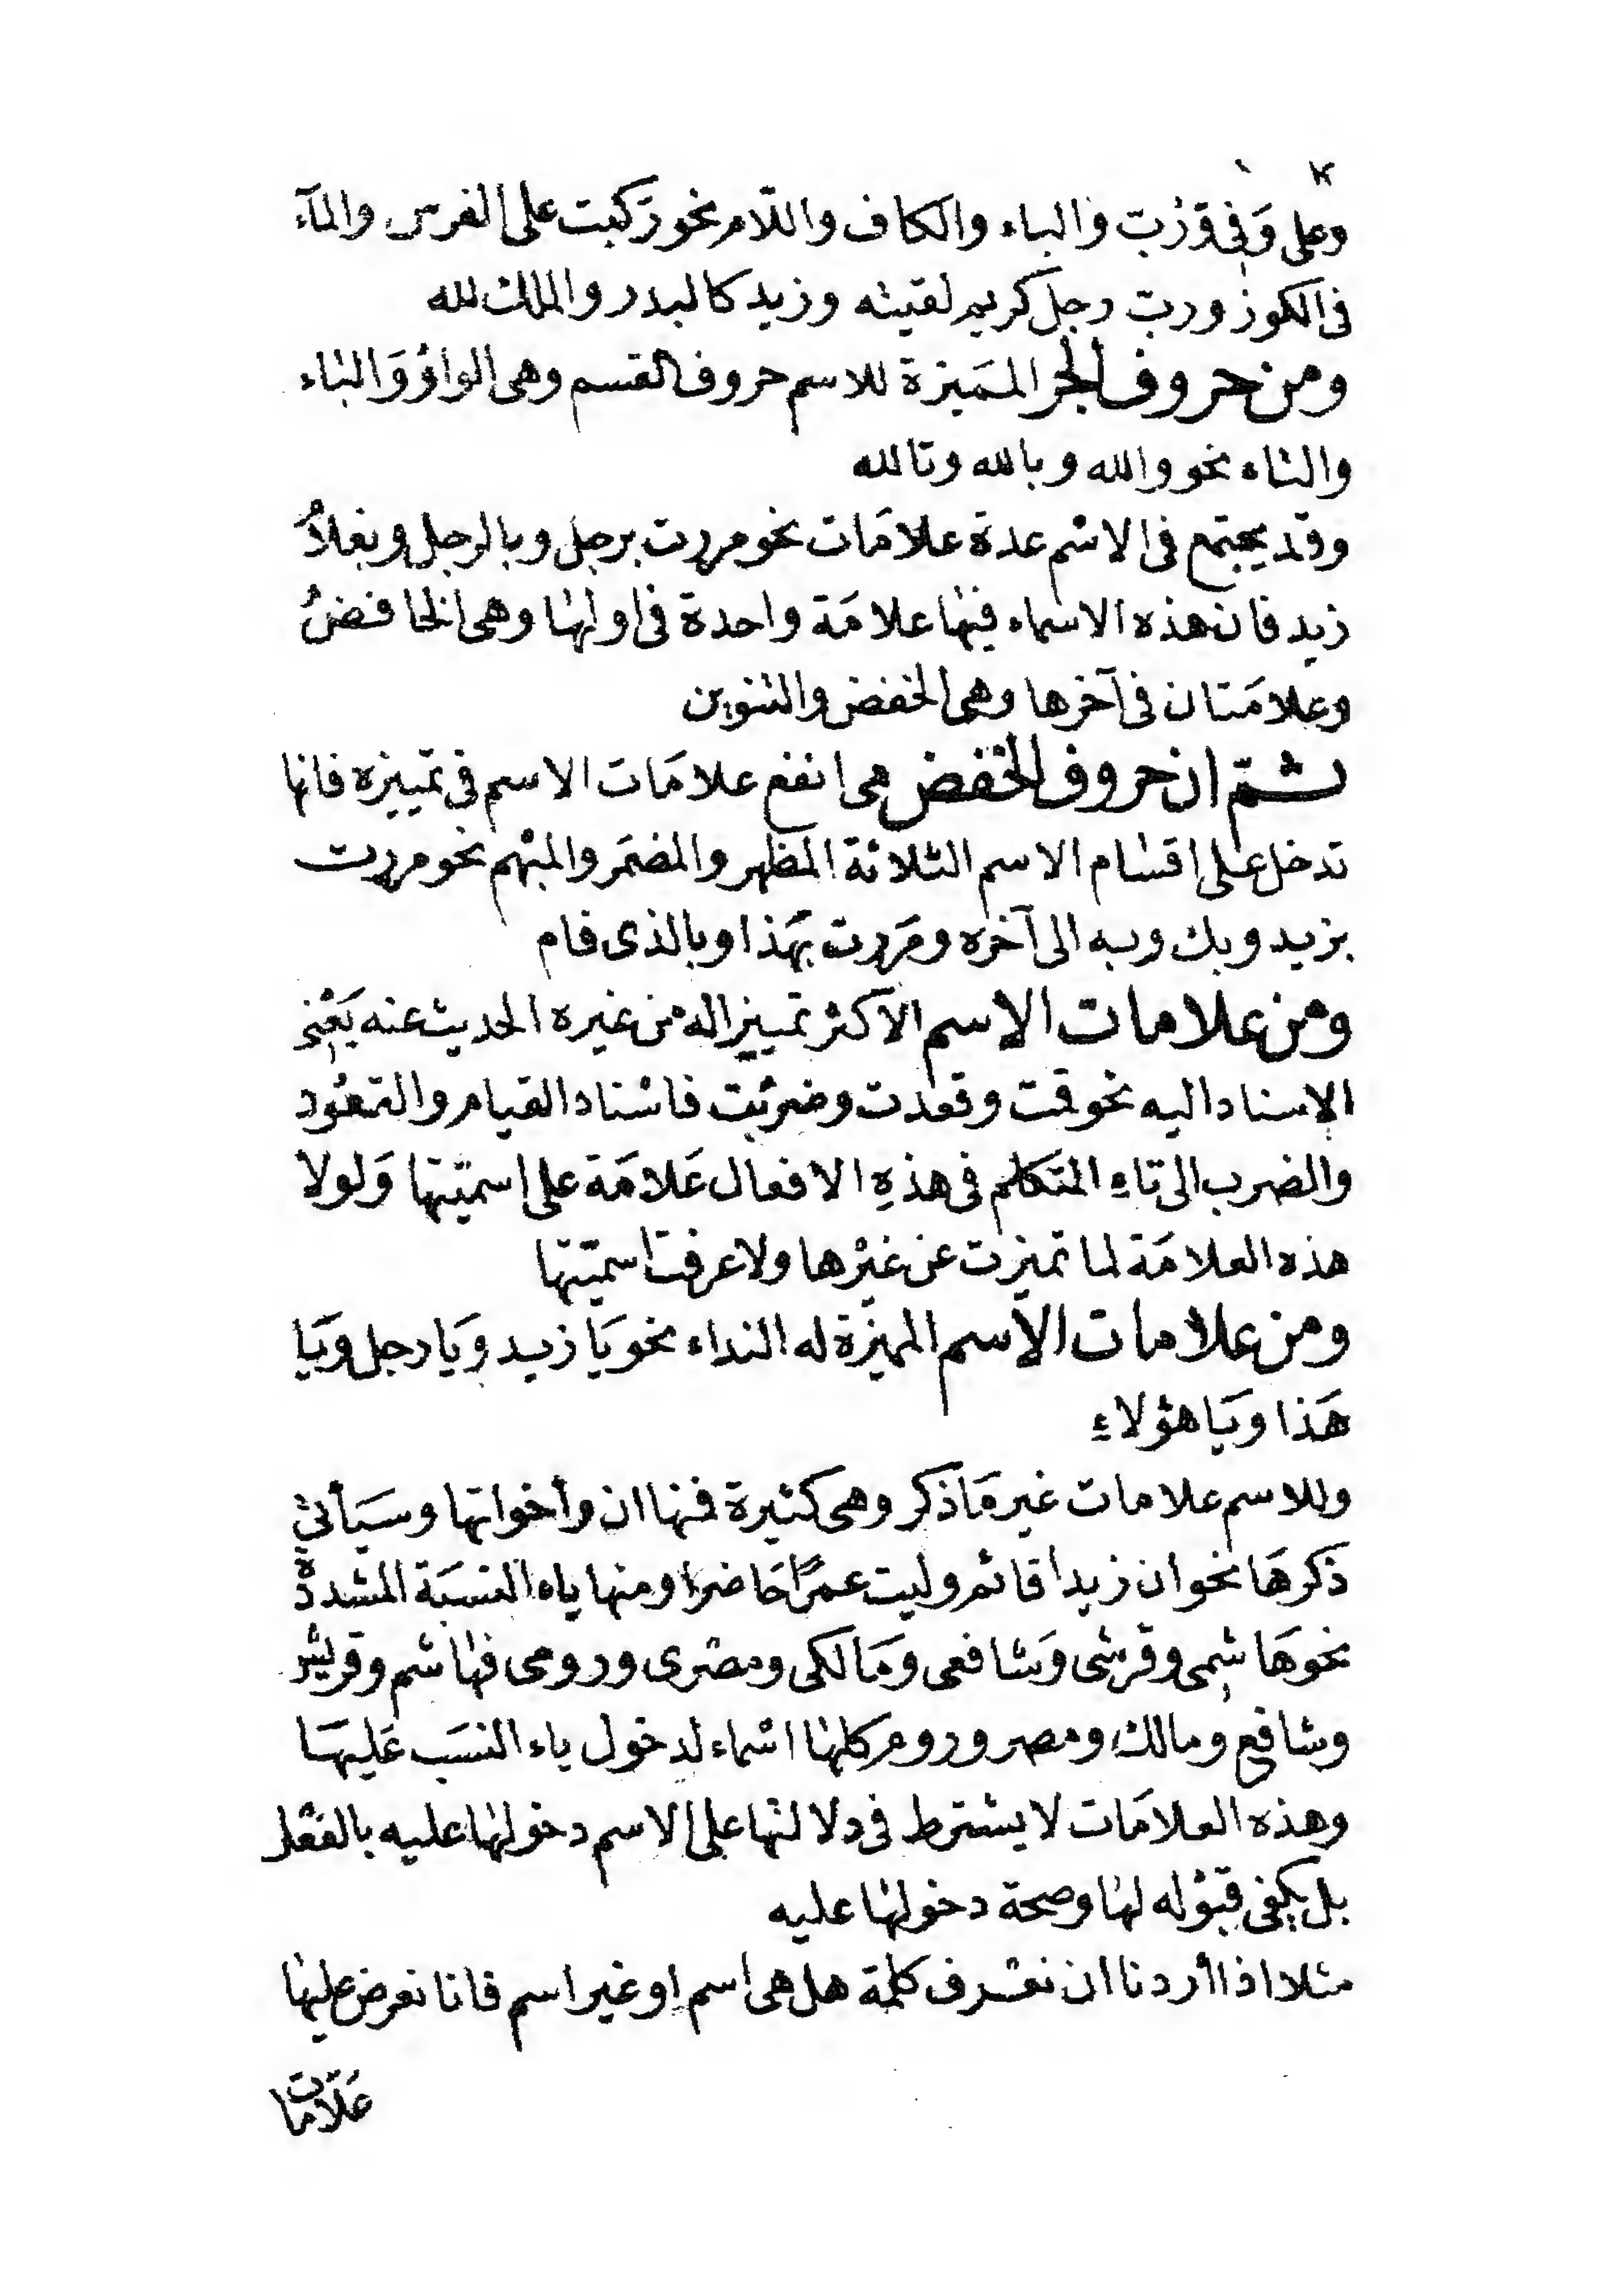 وعلى وَفِي وَرُبّ والباء والكاف واللّام نحو ركبت على الفرس والمآء
فى الكوز وربّ رجل كريم لقيته وزيد كالبدر والملك لله
ومن حروف الجر المميزة للاسم حروف القسم وهى الواوُ وَالباء
والتاء نحو والله وبالله وتالله
وقد يجتمع فى الاسْم عدة علامَات نحو مررت برجل وبالرجل وبغلامُ
زيد فان هذه الاسماء فيها علامَة واحدة فى اولها وهى الخافضُ
وعلامَتان فى آخرها وهى الخفض والتنوين
ثمّ ان حروف الخفض هى انفع علامَات الاسم فى تمييزه فانها
تدخل على اقسام الاسم الثلاثة المظهر والمضمَر والمبْهم نحو مررت
بزيد وبك وبه الى آخره ومَررت بهَذا وبالذى قام
ومن علامات الاسم الاكثر تمييزا له من غيره الحديث عنه يَعْنِى
الاسناد اليه نحو قمت وقعدت وضرَبْت فاسْناد القيام والقعُود
والضرب الى تاءِ المتَكلم فى هذهِ الافعال عَلامَة على اسميّتها وَلولا
هذه العلامَة لما تميزت عن غيْرها ولا عرفت اسميّتها
ومن علامات الاسم المميزة له النداء نحو يَا زيد وَيَا رجل وَيَا
هَذا وَيَا هؤلاءِ
وللاسم علامات غير مَا ذكر وهى كثيرة فمنها ان وأخواتها وسَيَأتي
ذكرهَا نحو ان زيدا قائم وليت عمرًا حَاضرا ومنها ياء النسبَة المشددة
نحو هَاشمِى وقرشى وَشافعى وَمَالكى ومصْرى ورومى فهاشم وقريش
وشافع ومالك ومصر وروم كلها اسْماء لدخول ياء النسَب عَليهَا
وهذه العلامَات لا يشترط فى دلالتها على الاسم دخولها عليه بالفعْل
بل يكفى قبُوله لها وصحة دخولها عليه
مثلا اذا أردنا ان نعْرف كلمة هل هى اسم او غير اسم فانا نعرض عليها
عَلَامَات